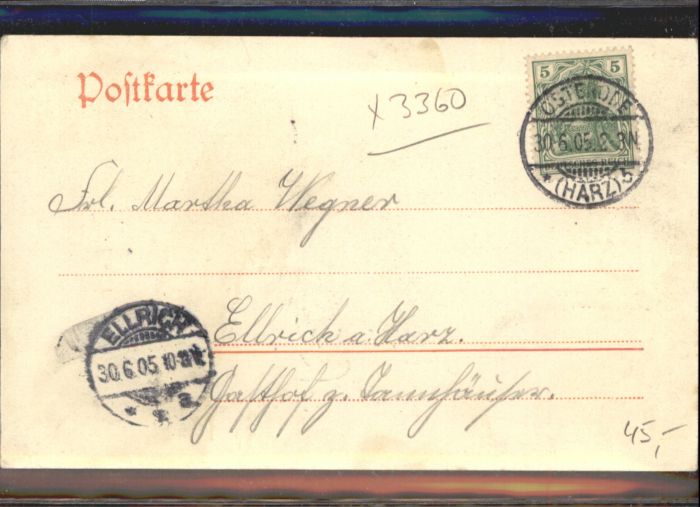 Postkarte
x3360
5 5
OSTERODE
30.6.05.2-3N
* (HARZ) 5
Frl. Martha Wegner
Ellrich a. Harz.
Gasthof z. Tannhäuser.
ELLRICH
30.6.05.10-11V.
* * a
45,-